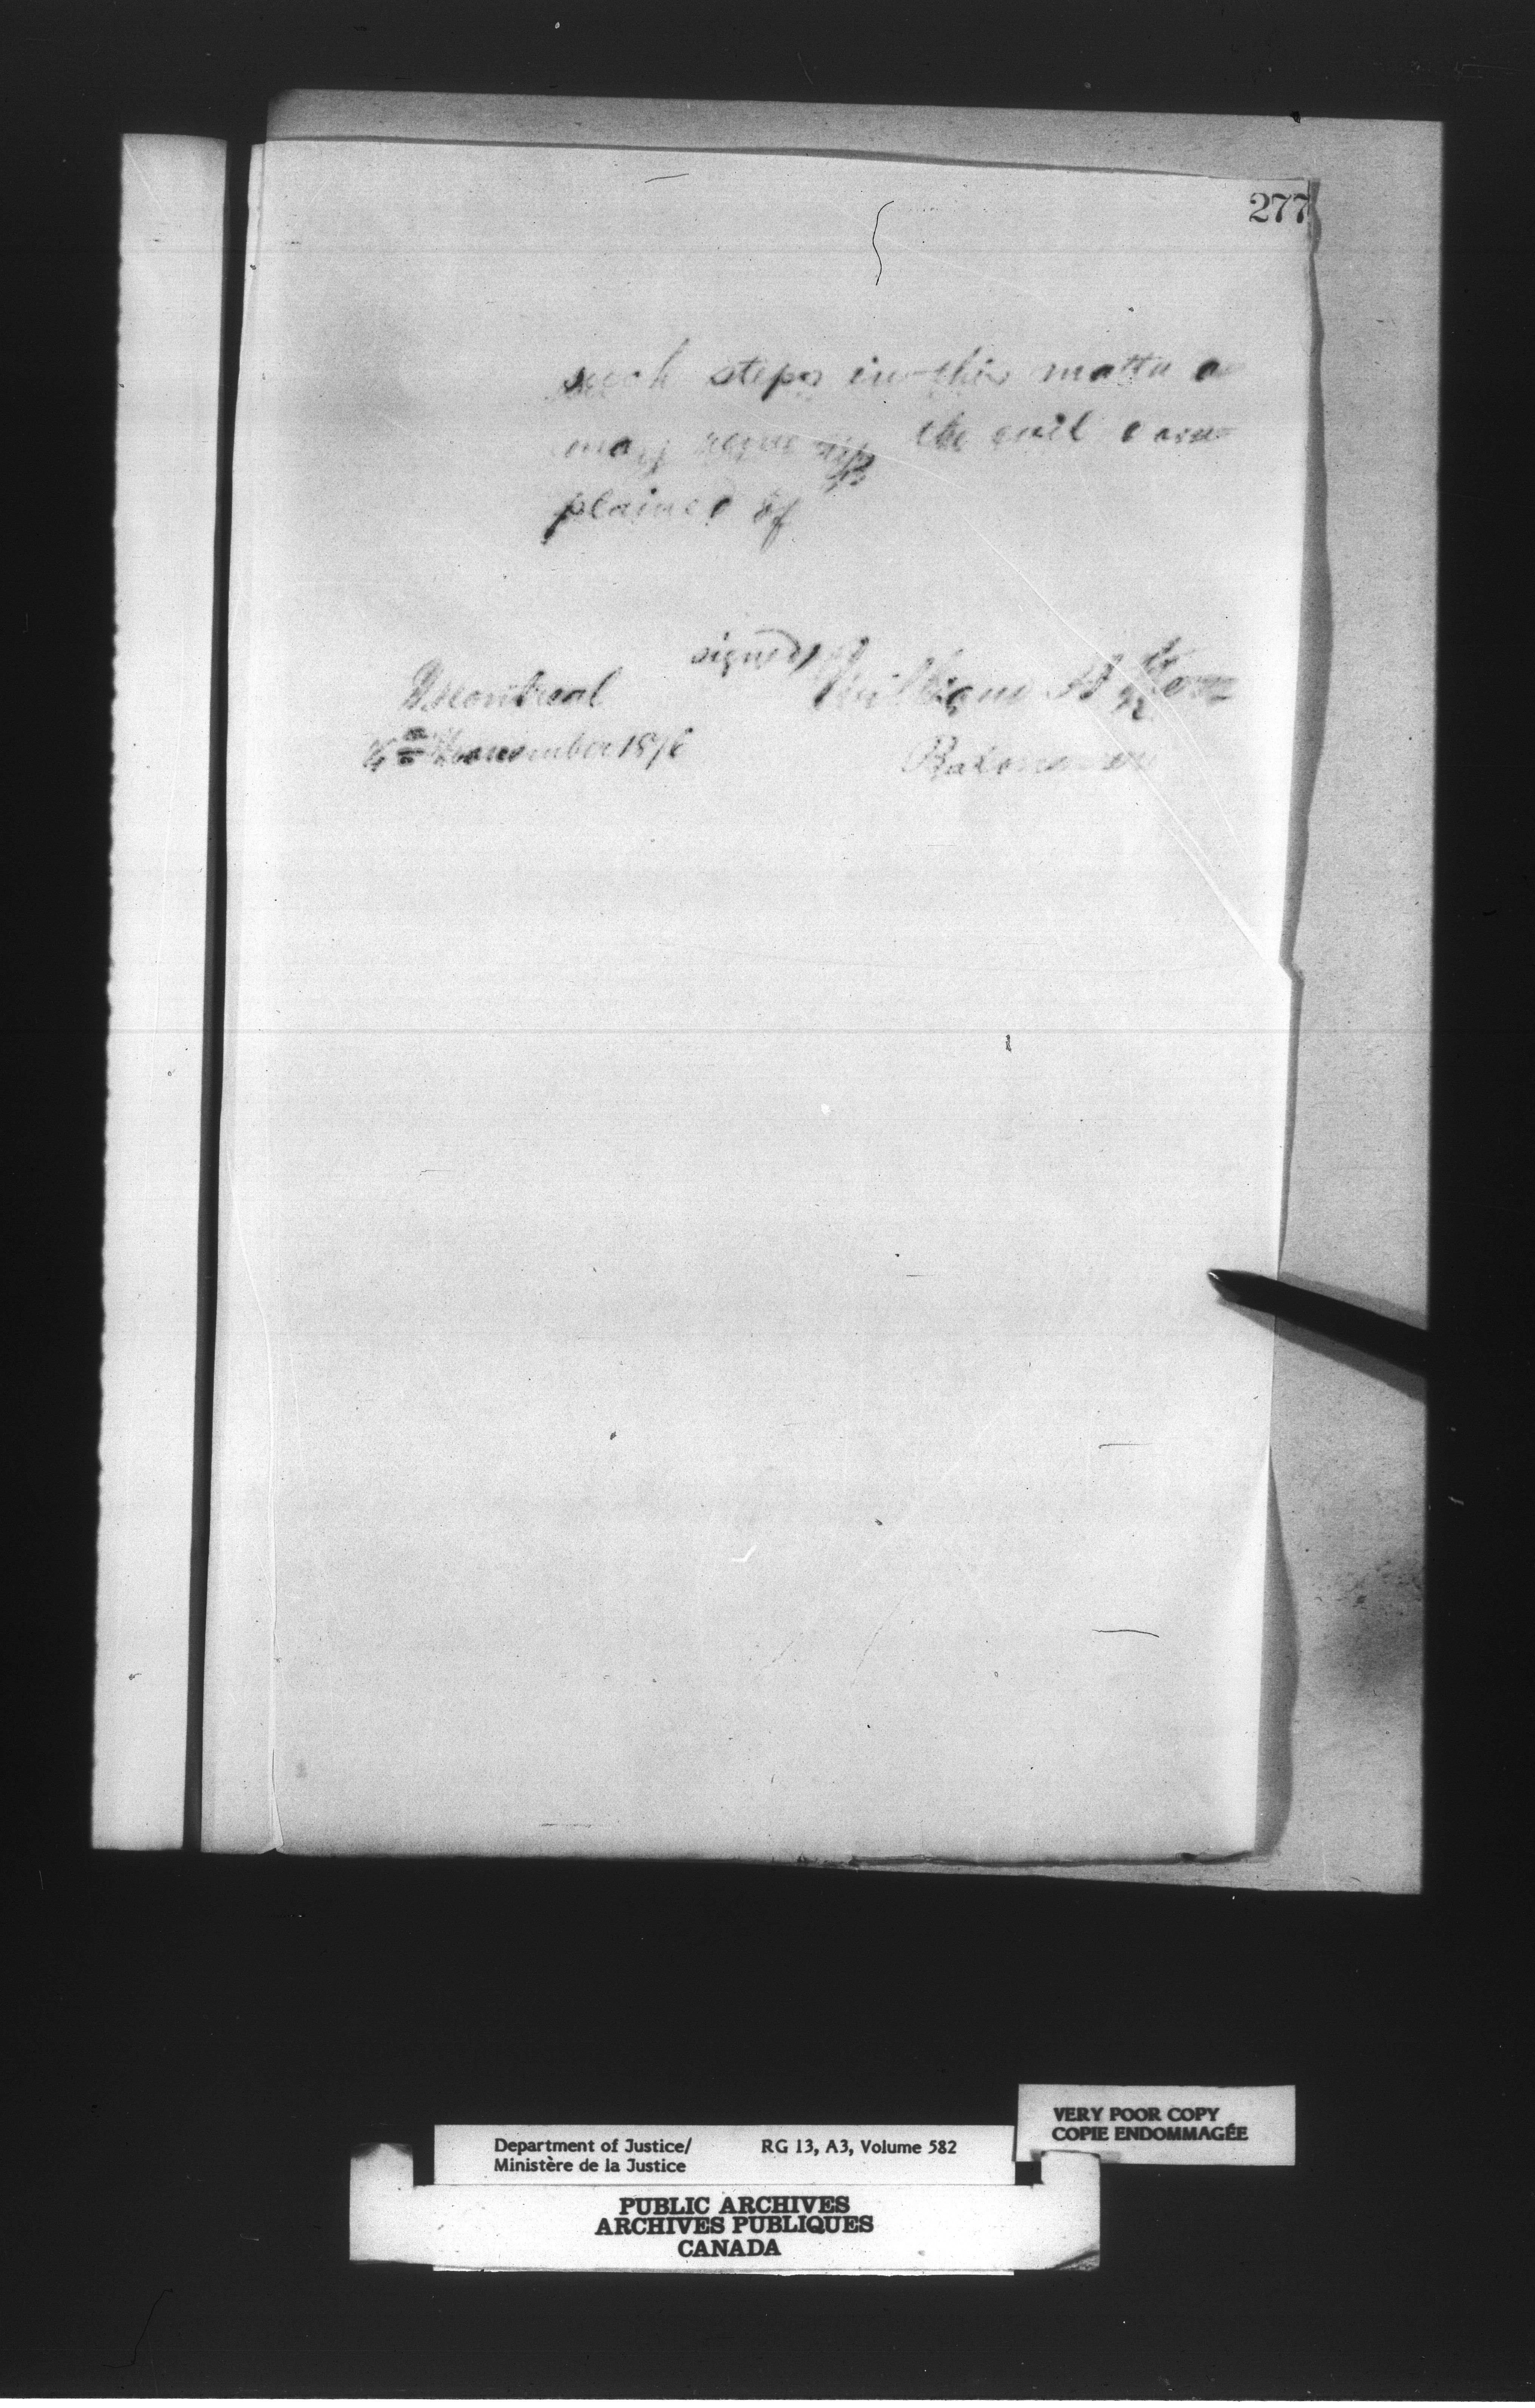 277
such steps in this matter as
may remedy the evil com-
plained of
signed) William H Kerr
Montreal
November 187
Batonnier
VERY POOR COPY
COPIE ENDOMMAGÉE
Department of Justice/ RG 13, A3, Volume 582
Ministère de la Justice
PUBLIC ARCHIVES
ARCHIVES PUBLIQUES
CANADA